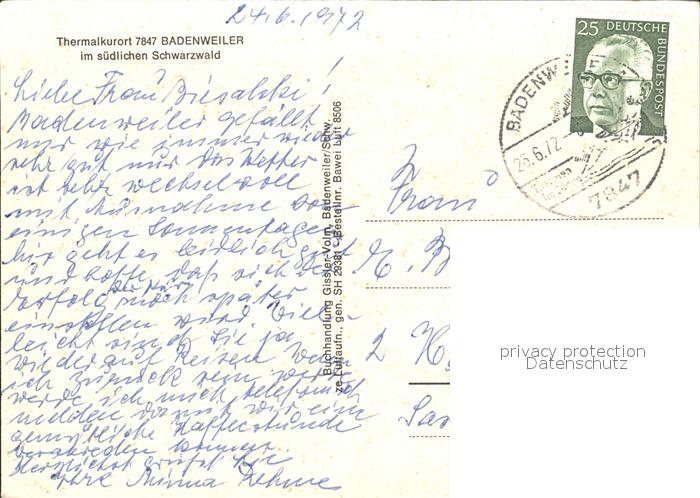 24.6.1972
Thermalkurort 7847 BADENWEILER
im südlichen Schwarzwald
Liebe Frau Biesalski!
Badenweiler gefällt
mir wie immer wieder
sehr gut nur das Wetter
ist sehr wechselvoll
mit Ausnahme von
einigen Sonnentagen
Mir geht es leidlich gut
und hoffe, daß sich der
Erfolg noch später
einstellen wird. Viel-
leicht sind Sie ja
wieder auf Reisen wenn
ich zurück sein werde
werde ich mich telefonisch
melden damit wir eine
gemütliche Kaffeestunde
verabreden können
Herzlichst grüßt Sie
Ihre Minna Rehme
Buchhandlung Gissler-Volm, Badenweiler/Schw.
ze Luftaufn., gen. SH 29381 - Bestellnr. Bawei Luft 8506
25 DEUTSCHE
BUNDESPOST
BADENW
25.6.72
7847
Frau
2 H
privacy protection
Datenschutz